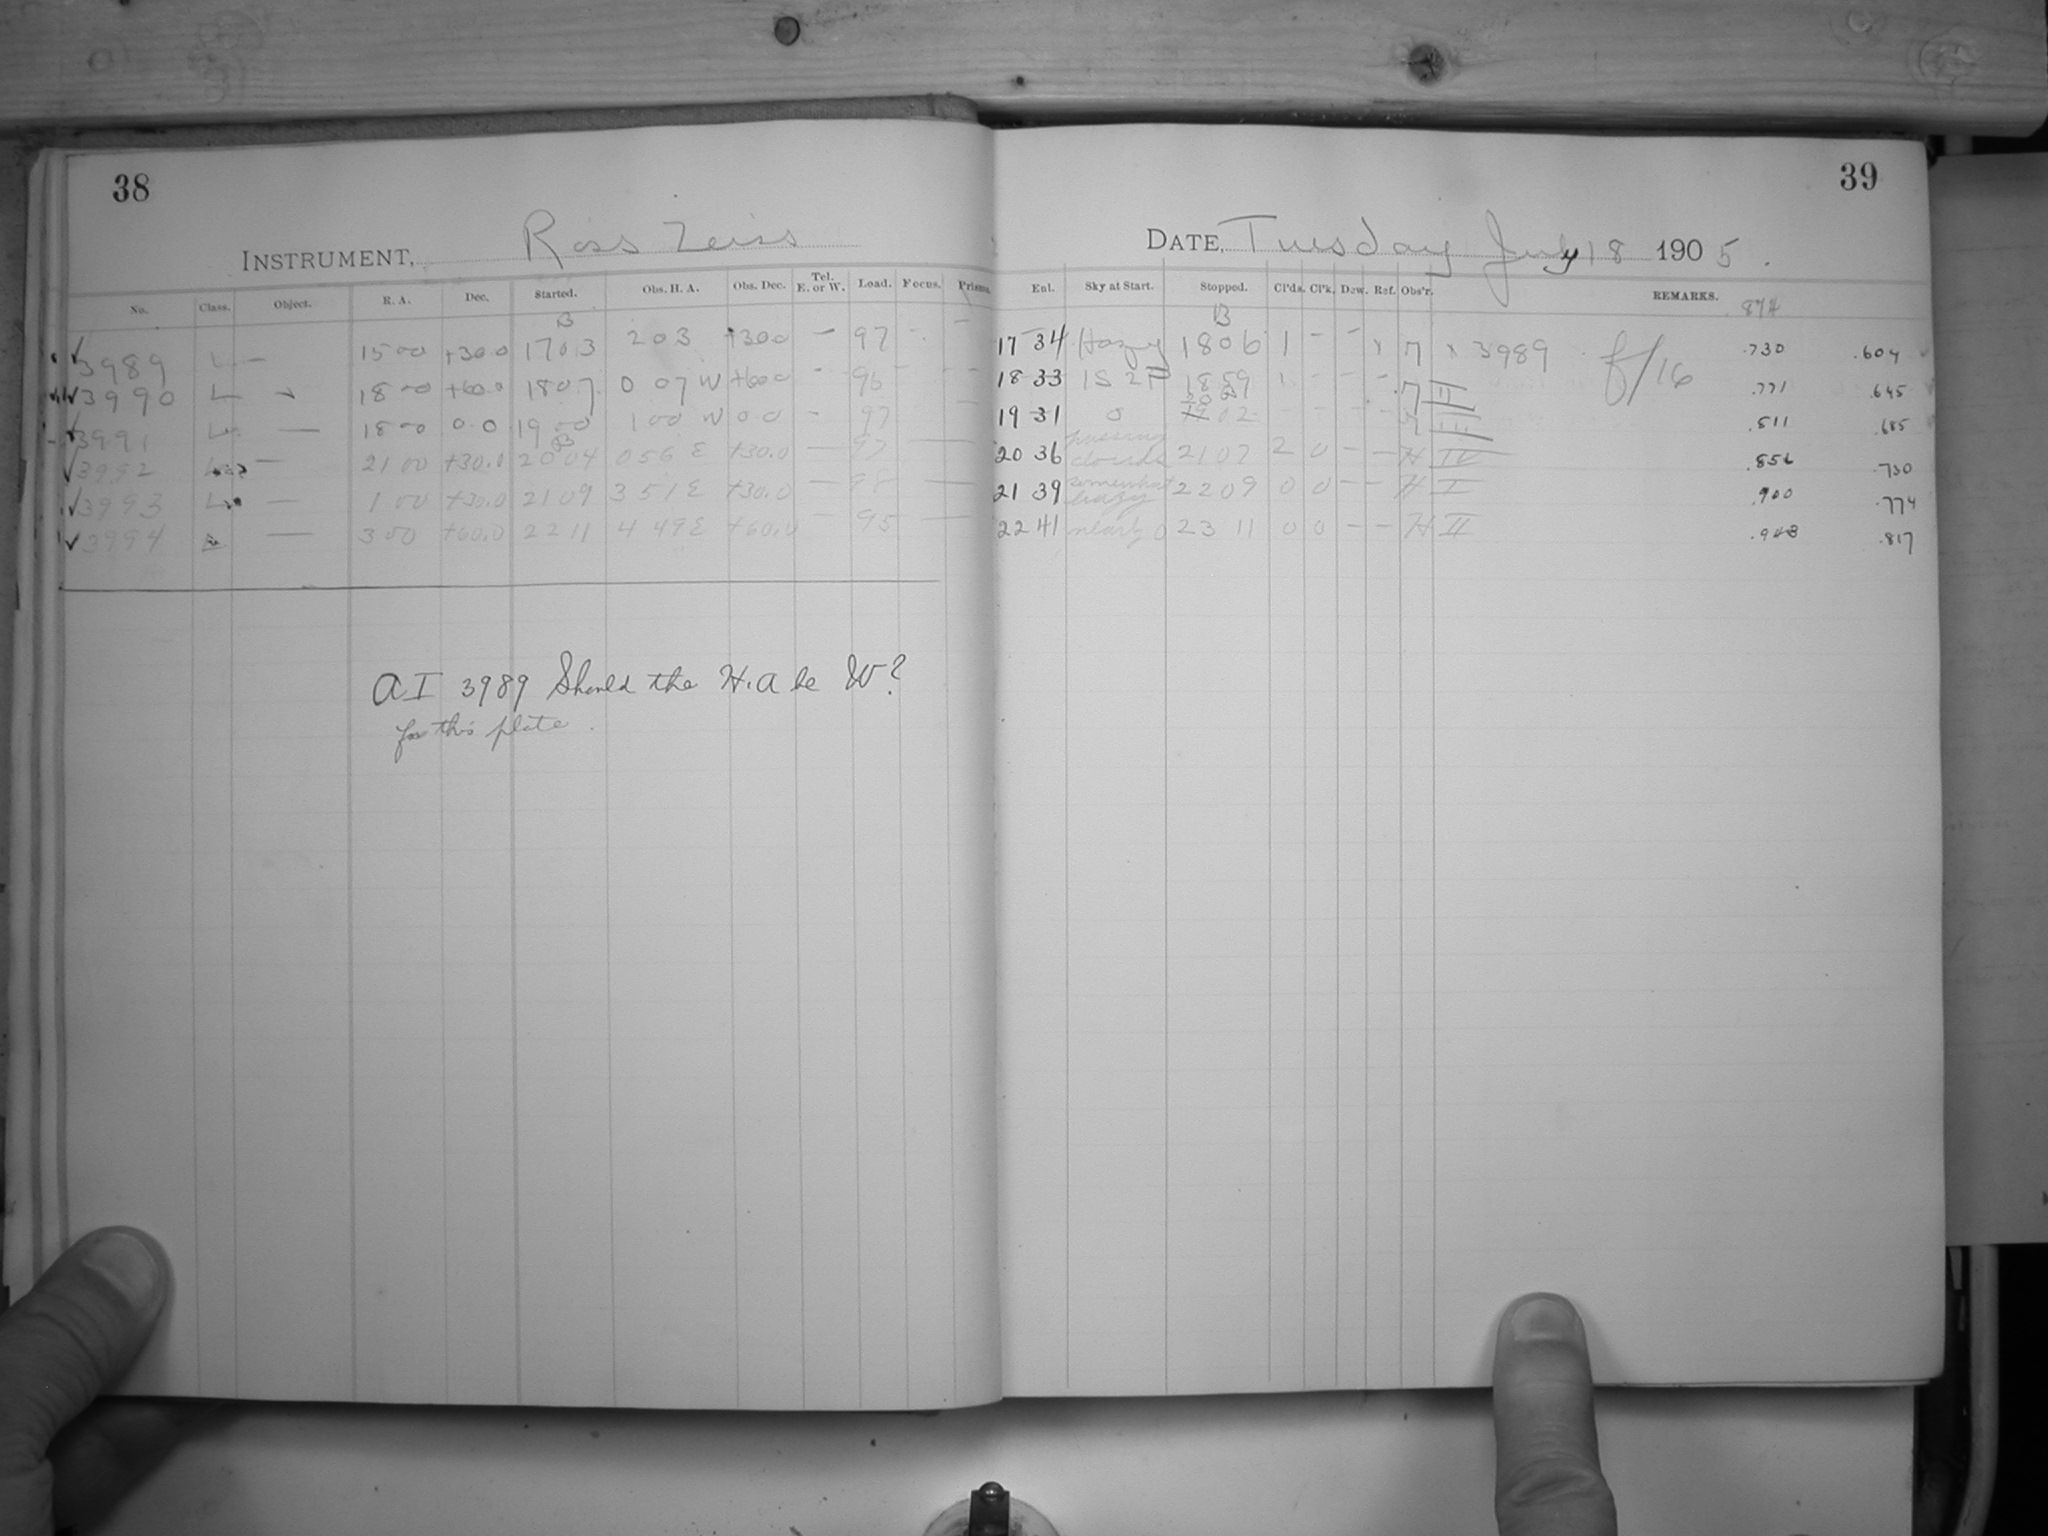 38
INSTRUMENT, Ross Zeiss
No. Class. Object. R. A. Dec. Started. Obs. H. A. Obs. Dec. Tel. E. or W. Load. Focus. Prisms.
3989 L — 15 00 +30.0 17 03 2 03 +30.0 — 97
3990 L 18 00 +60.0 18 07 0 07 W +60.0 - 96
3991 L — 18 00 0.0 19 00 1 00 W 0.0 - 97
3992 L — 21 00 +30.0 20 04 0 56 E +30.0 — 97 —
3993 L — 1 00 +30.0 21 09 3 51 E +30.0 — 98 —
3994 — 3 00 +60.0 22 11 4 49 E +60.0 — 95 —
A I 3989 Should the H.A be W?
for this plate.
39
DATE, Tuesday July 18 1905.
Enl. Sky at Start. Stopped. Cl'ds. Cl'k. Dew. Ref. Obs'r. REMARKS.
874
17 34 Hazy 18 06 1 - - 7 x 3989 f/16 .730 .604
18 33 18 59 - - - 7 II .771 .645
19 31 0 02 7 III .811 .685
20 36 passing clouds 21 07 2 0 — — H IV .856 .730
21 39 somewhat hazy 22 09 0 0 — — H I .900 .774
22 41 nearly 0 23 11 0 0 — — H II .943 .817